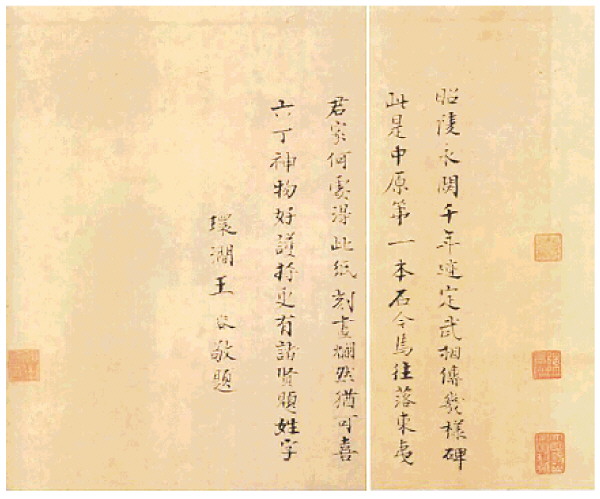 昭陵永閟千年迹定武相傳幾樣碑
此是中原第一本石今馬往落東夷
君家何處得此紙刻畫爛然猶可喜
六丁神物好護持更有諸賢題姓字
環湖王 敬題